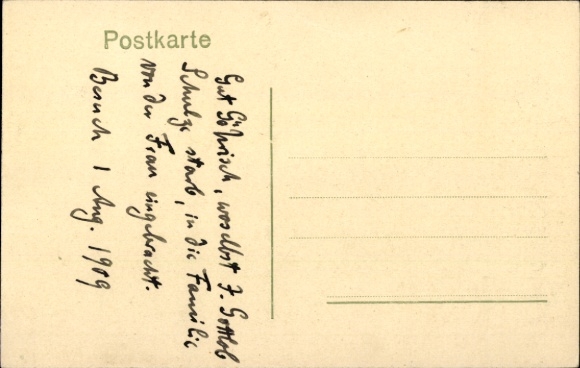 Postkarte
Gut Gohrisch, woselbst J. Gottlob
Schulze starb, in die Familie
von der Frau eingebracht.
Besuch 1 Aug. 1909